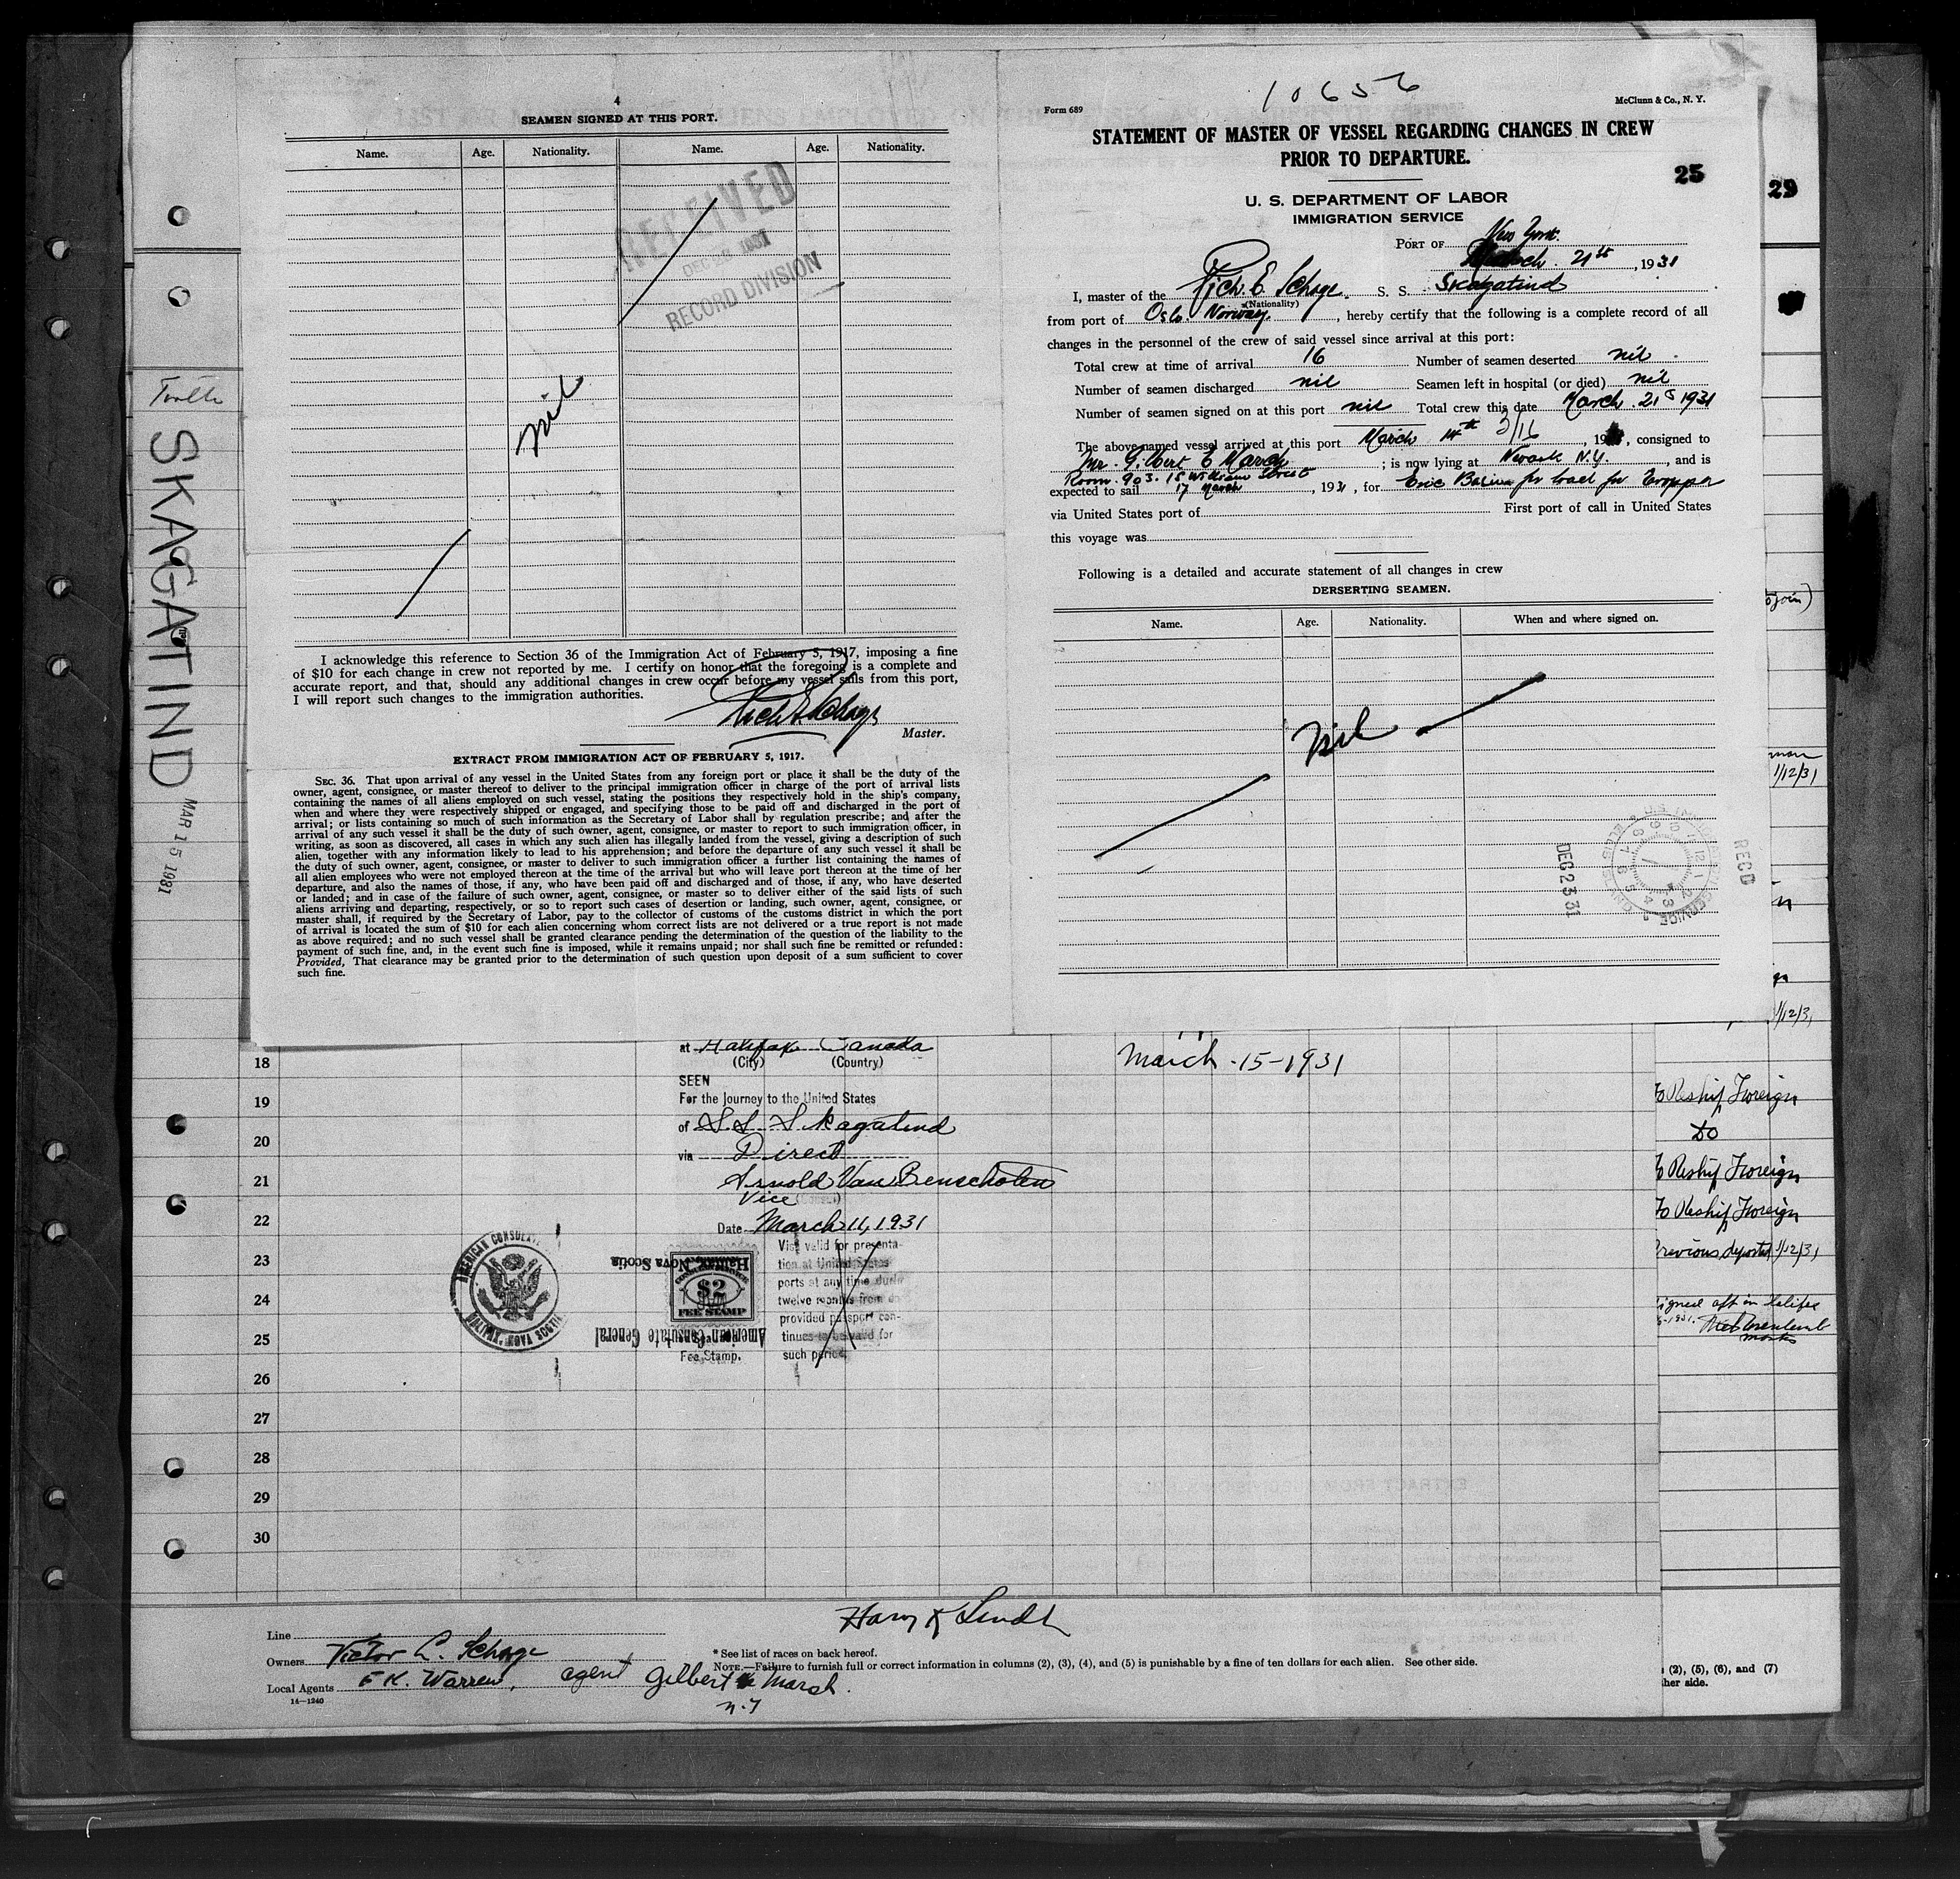 4
SEAMEN SIGNED AT THIS PORT.
Name. Age. Nationality. Name. Age. Nationality.
RECEIVED
RECORD DIVISION
nil
I acknowledge this reference to Section 36 of the Immigration Act of February 5, 1917, imposing a fine
of $10 for each change in crew not reported by me. I certify on honor that the foregoing is a complete and
accurate report, and that, should any additional changes in crew occur before my vessel sails from this port,
I will report such changes to the immigration authorities.
Master.
EXTRACT FROM IMMIGRATION ACT OF FEBRUARY 5, 1917.
SEC. 36. That upon arrival of any vessel in the United States from any foreign port or place it shall be the duty of the
owner, agent, consignee, or master thereof to deliver to the principal immigration officer in charge of the port of arrival lists
containing the names of all aliens employed on such vessel, stating the positions they respectively hold in the ship's company,
when and where they were respectively shipped or engaged, and specifying those to be paid off and discharged in the port of
arrival; or lists containing so much of such information as the Secretary of Labor shall by regulation prescribe; and after the
arrival of any such vessel it shall be the duty of such owner, agent, consignee, or master to report to such immigration officer, in
writing, as soon as discovered, all cases in which any such alien has illegally landed from the vessel, giving a description of such
alien, together with any information likely to lead to his apprehension; and before the departure of any such vessel it shall be
the duty of such owner, agent, consignee, or master to deliver to such immigration officer a further list containing the names of
all alien employees who were not employed thereon at the time of the arrival but who will leave port thereon at the time of her
departure, and also the names of those, if any, who have been paid off and discharged and of those, if any, who have deserted
or landed; and in case of the failure of such owner, agent, consignee, or master so to deliver either of the said lists of such
aliens arriving and departing, respectively, or so to report such cases of desertion or landing, such owner, agent, consignee, or
master shall, if required by the Secretary of Labor, pay to the collector of customs of the customs district in which the port
of arrival is located the sum of $10 for each alien concerning whom correct lists are not delivered or a true report is not made
as above required; and no such vessel shall be granted clearance pending the determination of the question of the liability to the
payment of such fine, and, in the event such fine is imposed, while it remains unpaid; nor shall such fine be remitted or refunded:
Provided, That clearance may be granted prior to the determination of such question upon deposit of a sum sufficient to cover
such fine.
10656
Form 689
McClunn & Co., N. Y.
STATEMENT OF MASTER OF VESSEL REGARDING CHANGES IN CREW
PRIOR TO DEPARTURE.
25
29
U. S. DEPARTMENT OF LABOR
IMMIGRATION SERVICE
PORT OF New York.
March. 21st, 1931
I, master of the Rich. E. Schage. S. S. Skagatind
(Nationality)
from port of Oslo. Norway., hereby certify that the following is a complete record of all
changes in the personnel of the crew of said vessel since arrival at this port:
Total crew at time of arrival 16 Number of seamen deserted nil.
Number of seamen discharged nil Seamen left in hospital (or died) nil
Number of seamen signed on at this port nil Total crew this date March. 21s 1931
The above-named vessel arrived at this port March 14th 3/16, 19, consigned to
Mr. Gilbert E ; is now lying at Newark N.Y., and is
Room. 903. 15 William Street
expected to sail 17 March, 1931, for Eric Basin for load for
via United States port of First port of call in United States
this voyage was
Following is a detailed and accurate statement of all changes in crew
DERSERTING SEAMEN.
Name. Age. Nationality. When and where signed on.
nil
DEC 23 31
REC'D
SKAGATIND
MAR 15 1931
1/12/31
1/12/31
at Halifax Canada
(City) (Country)
SEEN
For the Journey to the United States
of S.S. Skagatind
via Direct
Arnold Van Benscholen
Vice
Date March 11, 1931
Visa valid for presenta-
tion at United States
ports at any time during
twelve months from
provided passport con-
tinues to be valid for
such period.
AMERICAN CONSULATE
HALIFAX, NOVA SCOTIA
Halifax, Nova Scotia
$2
FEE STAMP
American Consulate General
Fee Stamp.
March-15-1931
18
19
20
21
22
23
24
25
26
27
28
29
30
To Reship Foreign
Do
To Reship Foreign
To Reship Foreign
Previous deported 1/12/31
Line
Owners Victor L. Schage
Local Agents F K. Warren, agent Gilbert Marsh.
n.y
14—1240
* See list of races on back hereof.
NOTE.—Failure to furnish full or correct information in columns (2), (3), (4), and (5) is punishable by a fine of ten dollars for each alien. See other side.
(2), (5), (6), and (7)
her side.